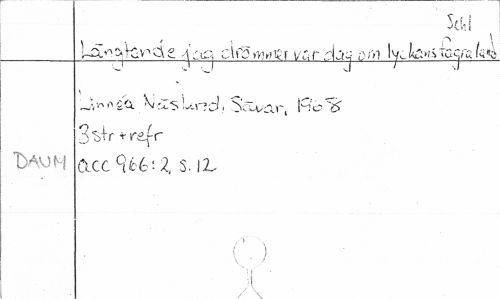 Schl
Längtande jag drömmer var dag om lyckans fagra land
Linnéa Näslund, Sävar, 1968
3 str + refr
DAUM acc 966:2, s. 12